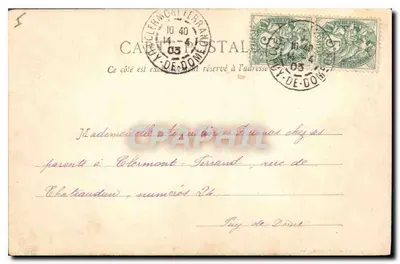 CLERMONT-FERRAND
10 40
14-4
03
PUY-DE-DOME
CARTE POSTALE
10 40
14-4
03
PUY-DE-DOME
Ce côté est exclusivement réservé à l'adresse
Mademoiselle chez ses
parents à Clermont-Ferrand, rue de
Chateaudun, numéros 24
Puy de Dôme
CPAPHIL.COM